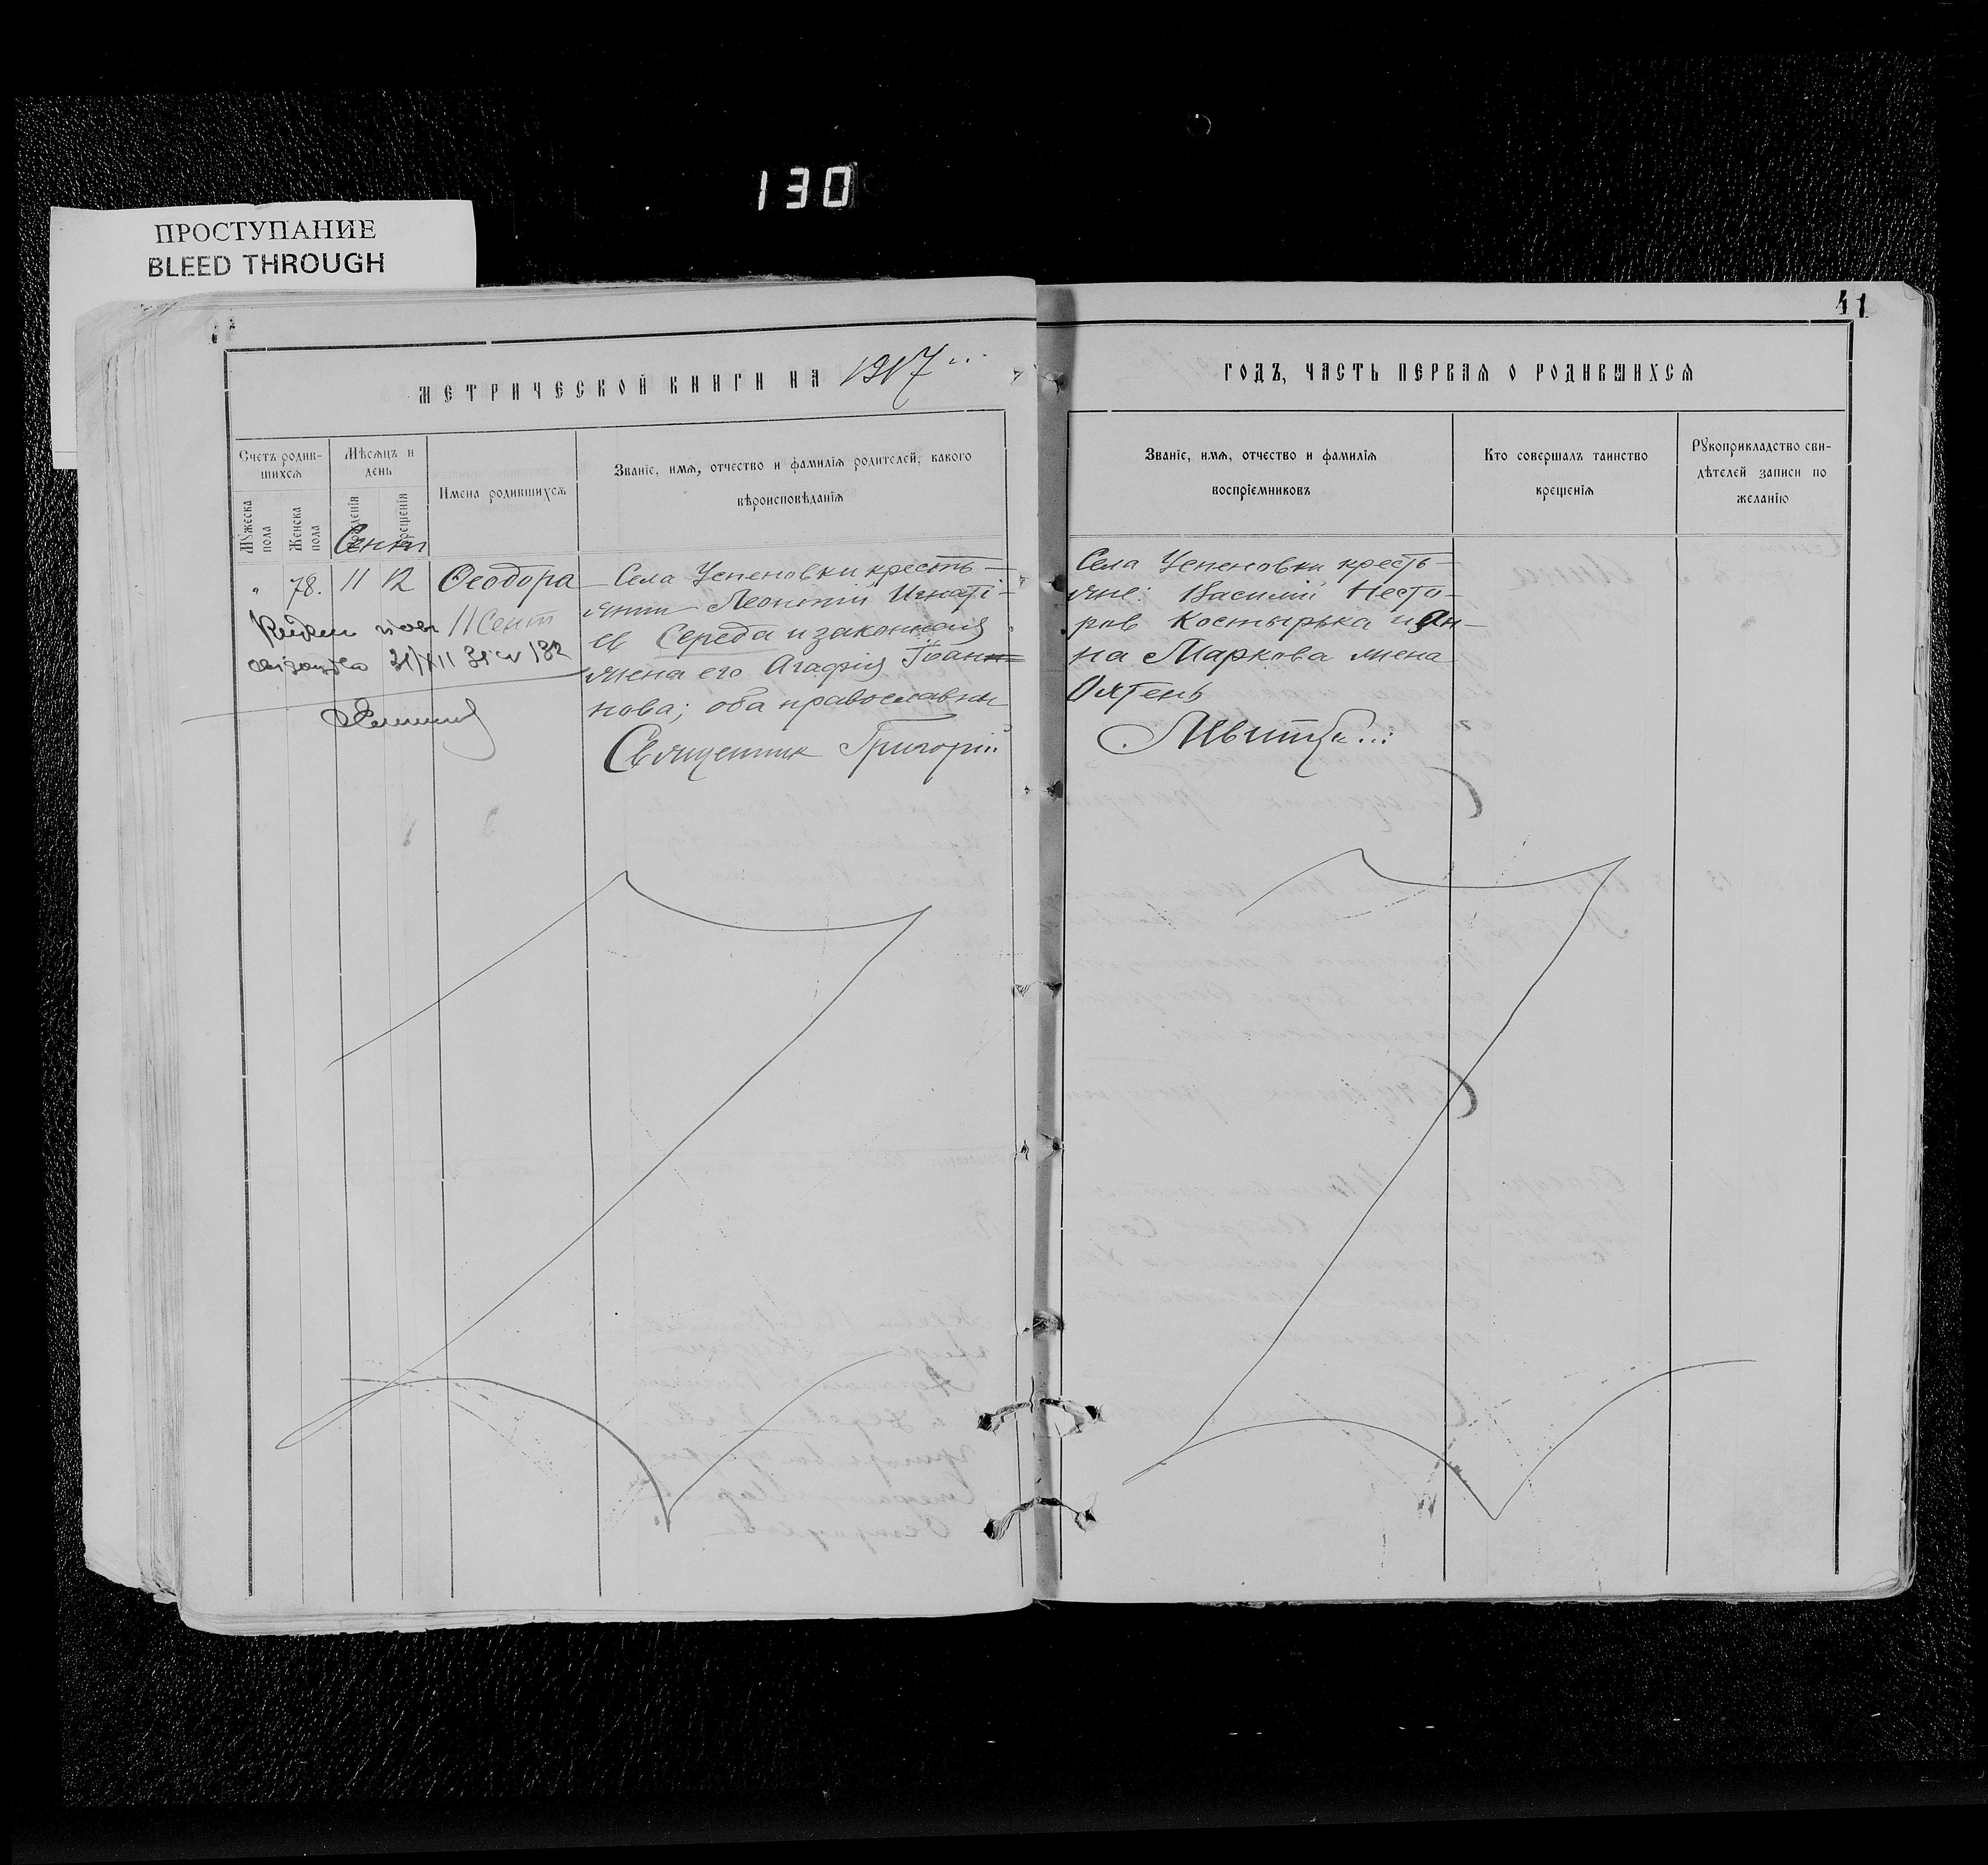 130
ПРОСТУПАНИЕ
BLEED THROUGH
41
МЕТРИЧЕСКОЙ КНИГИ НА 1917
ГОДЪ, ЧАСТЬ ПЕРВАЯ О РОДИВШИХСЯ
Счетъ родив-
шихся
Мужеска пола
Женска пола
Мѣсяцъ и
день
рожденія
крещенія
Имена родившихся
Званіе, имя, отчество и фамилія родителей, какого
вѣроисповѣданія
Званіе, имя, отчество и фамилія
воспріемниковъ
Кто совершалъ таинство
крещенія
Рукоприкладство сви-
дѣтелей записи по
желанію
Сент
" 78. 11 12 Ѳеодора
11 Сент
31/XII 31
Села Успеновки кресть-
янин Леонтий Игнаті-
ев Середа и законная
жена его Агафія Іоан-
нова; оба православны
Священник Григорій
Села Успеновки кресть-
яне: Василий Несто-
ров Костырька и Ан-
на Маркова жена